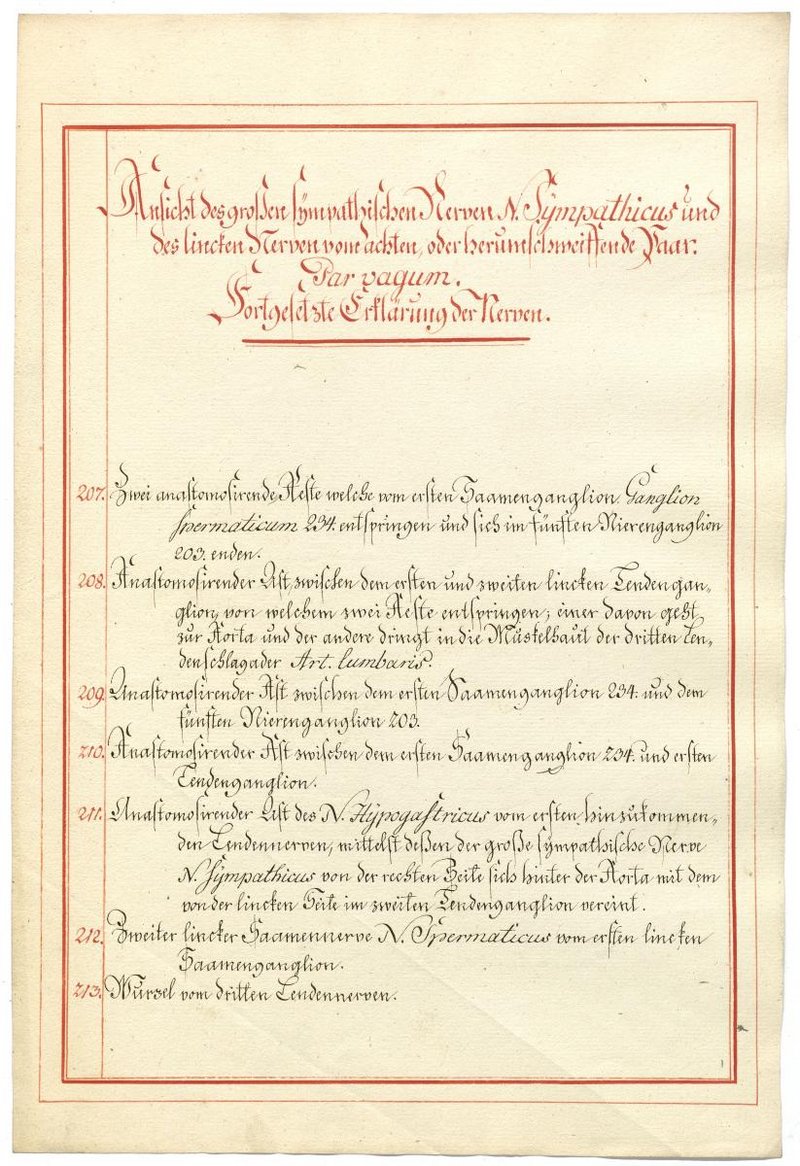 Ansicht des großen sympathischen Nerven N. Sympathicus und
des lincken Nerven vom achten, oder herumschweiffende Paar.
Par vagum.
Fortgesetzte Erklärung der Nerven.
207. Zwei anastomosirende Aeste welche vom ersten Saamenganglion Ganglion
spermaticum 234. entspringen und sich im fünften Nierenganglion
203. enden.
208. Anastomosirender Ast, zwischen dem ersten und zweiten lincken Lendengan„
glion, von welchem zwei Aeste entspringen; einer davon geht
zur Aorta und der andere dringt in die Muskelhaut der dritten Len„
denschlagader Art. lumbaris.
209. Anastomosirender Ast zwischen dem ersten Saamenganglion 234. und dem
fünften Nierenganglion 203.
210. Anastomosirender Ast zwischen dem ersten Saamenganglion 234. und ersten
Lendenganglion.
211. Anastomosirender Ast des N. Hypogastricus vom ersten hinzukommen„
den Lendennerven, mittelst deßen der große sympathische Nerve
N. Sympathicus von der rechten Seite sich hinter der Aorta mit dem
von der lincken Seite im zweiten Lendenganglion vereint.
212. Zweiter lincker Saamennerve N. Spermaticus vom ersten lincken
Saamenganglion.
213. Wurzel vom dritten Lendennerven.